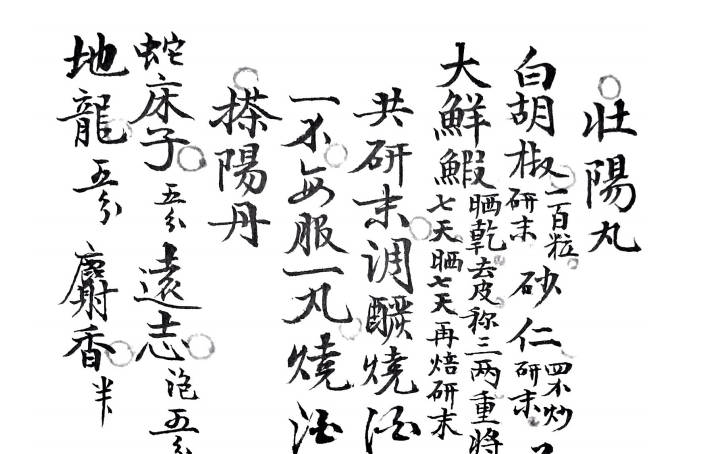 壮陽丸
白胡椒一百粒研末砂仁四不炒研末
大鮮鰕晒乾去皮称三两重將七天晒七天再焙研末
共研末調醾燒酒
一不每服一丸燒酒
搽陽丹
蛇床子五分遠志泡五分
地龍五分麝香半